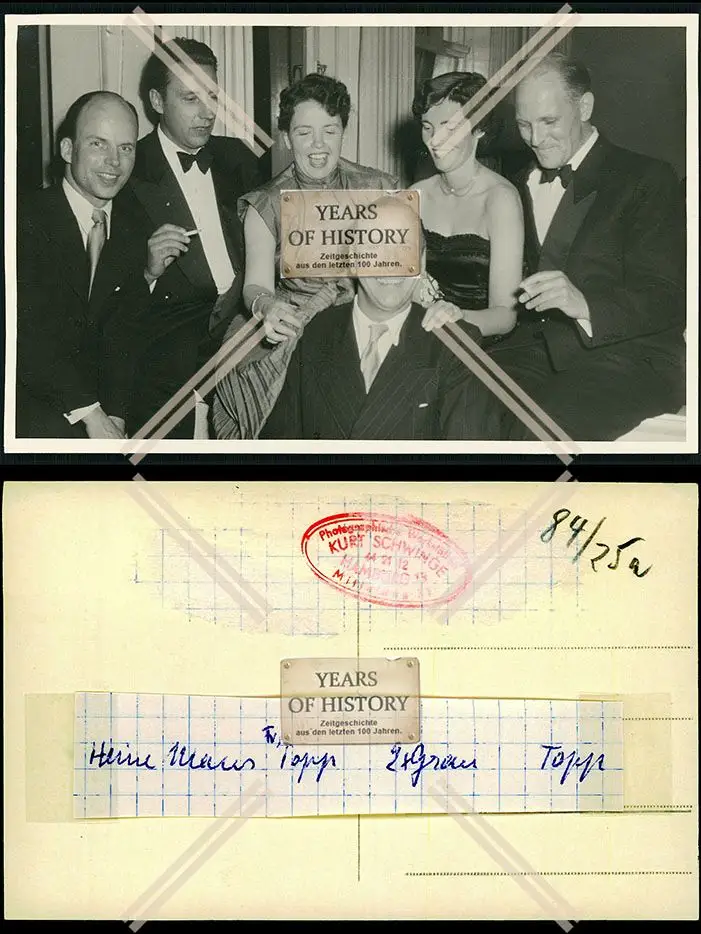 YEARS
OF HISTORY
Zeitgeschichte
aus den letzten 100 Jahren.
84/25a
Photographische Werkstätten
KURT SCHWINGE
44 21 12
HAMBURG 13
YEARS
OF HISTORY
Zeitgeschichte
aus den letzten 100 Jahren.
Heine Maus Fr. Topp Gran Topp